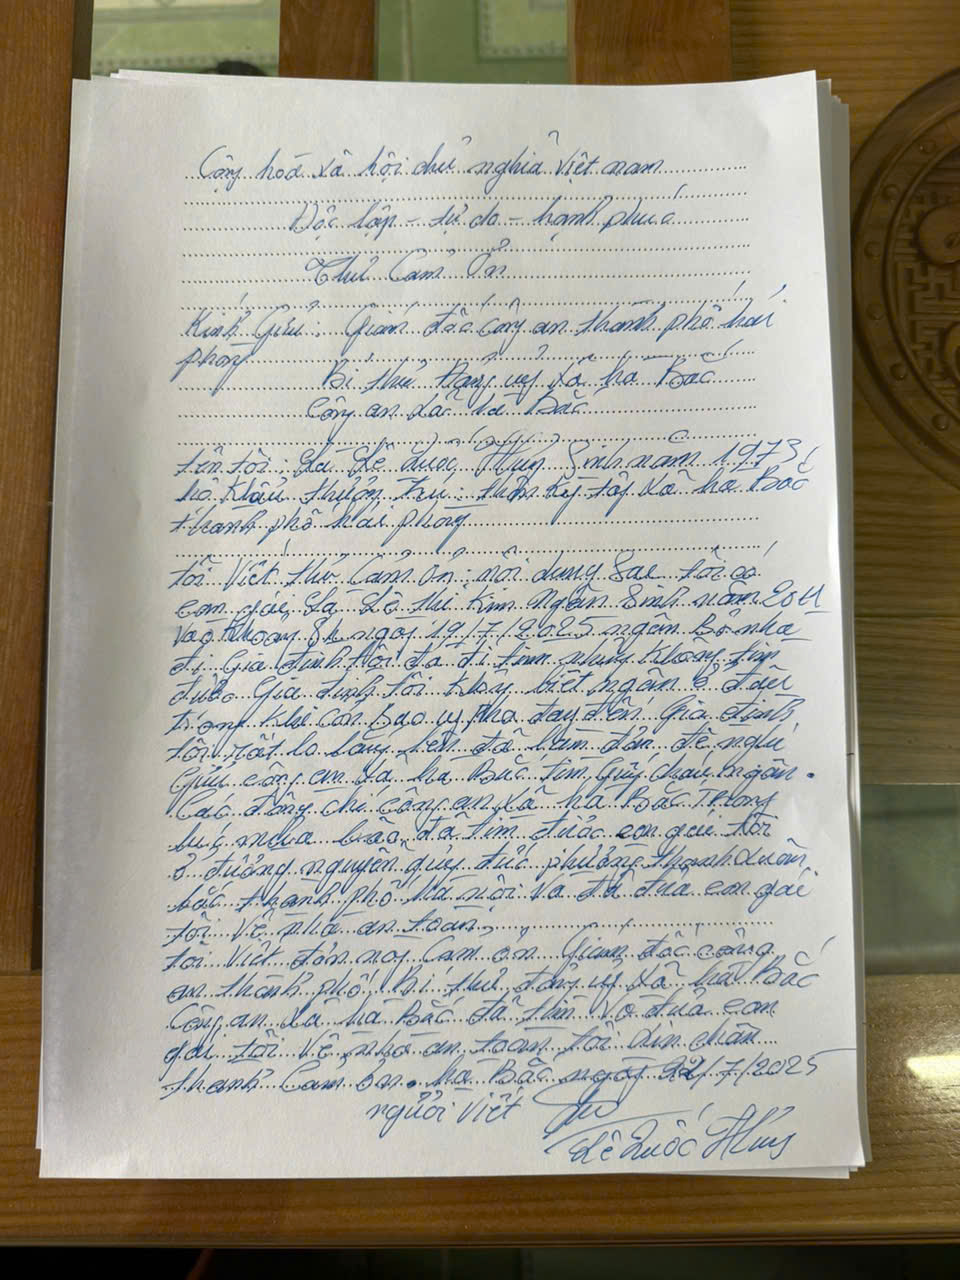 Cộng hoà xã hội chủ nghĩa Việt nam
Độc lập - tự do - hạnh phúc
Thư Cảm Ơn
Kính Gửi: Giám đốc công an thành phố hải
phòng
Bí thư Đảng uỷ xã hà Bắc
Công an xã hà Bắc
tên tôi: Là Lê Quốc Hùng Sinh năm 1973
hộ khẩu thường trú: thôn kỳ tây xã hà Bắc
thành phố hải phòng
tôi Viết thư Cảm ơn: nội dung Sau tôi có
con gái Là Lê thị Kim Ngân Sinh năm 2011
vào khoảng 8h ngày 19/7/2025 ngân Bỏ nhà
đi Gia đình tôi đã đi tìm nhưng không tìm
được Gia đình tôi không biết ngân ở đâu
trong khi cơn Bão đến Gia đình
tôi rất lo lắng lên đã làm đơn đề nghị
Gửi công an xã hà Bắc tìm Giúp cháu ngân.
Các đồng chí công an xã hà Bắc Trong
lúc mưa bão đã tìm được con gái tôi
ở đường nguyễn quý đức phường thanh xuân
bắc thành phố hà nội và đã đưa con gái
tôi về nhà an toàn.
tôi Viết đơn này Cảm ơn Giám đốc công
an thành phố, Bí thư đảng uỷ xã hà Bắc
Công an xã hà Bắc đã tìm và đưa con
gái tôi về nhà an toàn tôi xin chân
thành Cảm ơn. hà Bắc ngày 22/7/2025
người viết
Lê Quốc Hùng